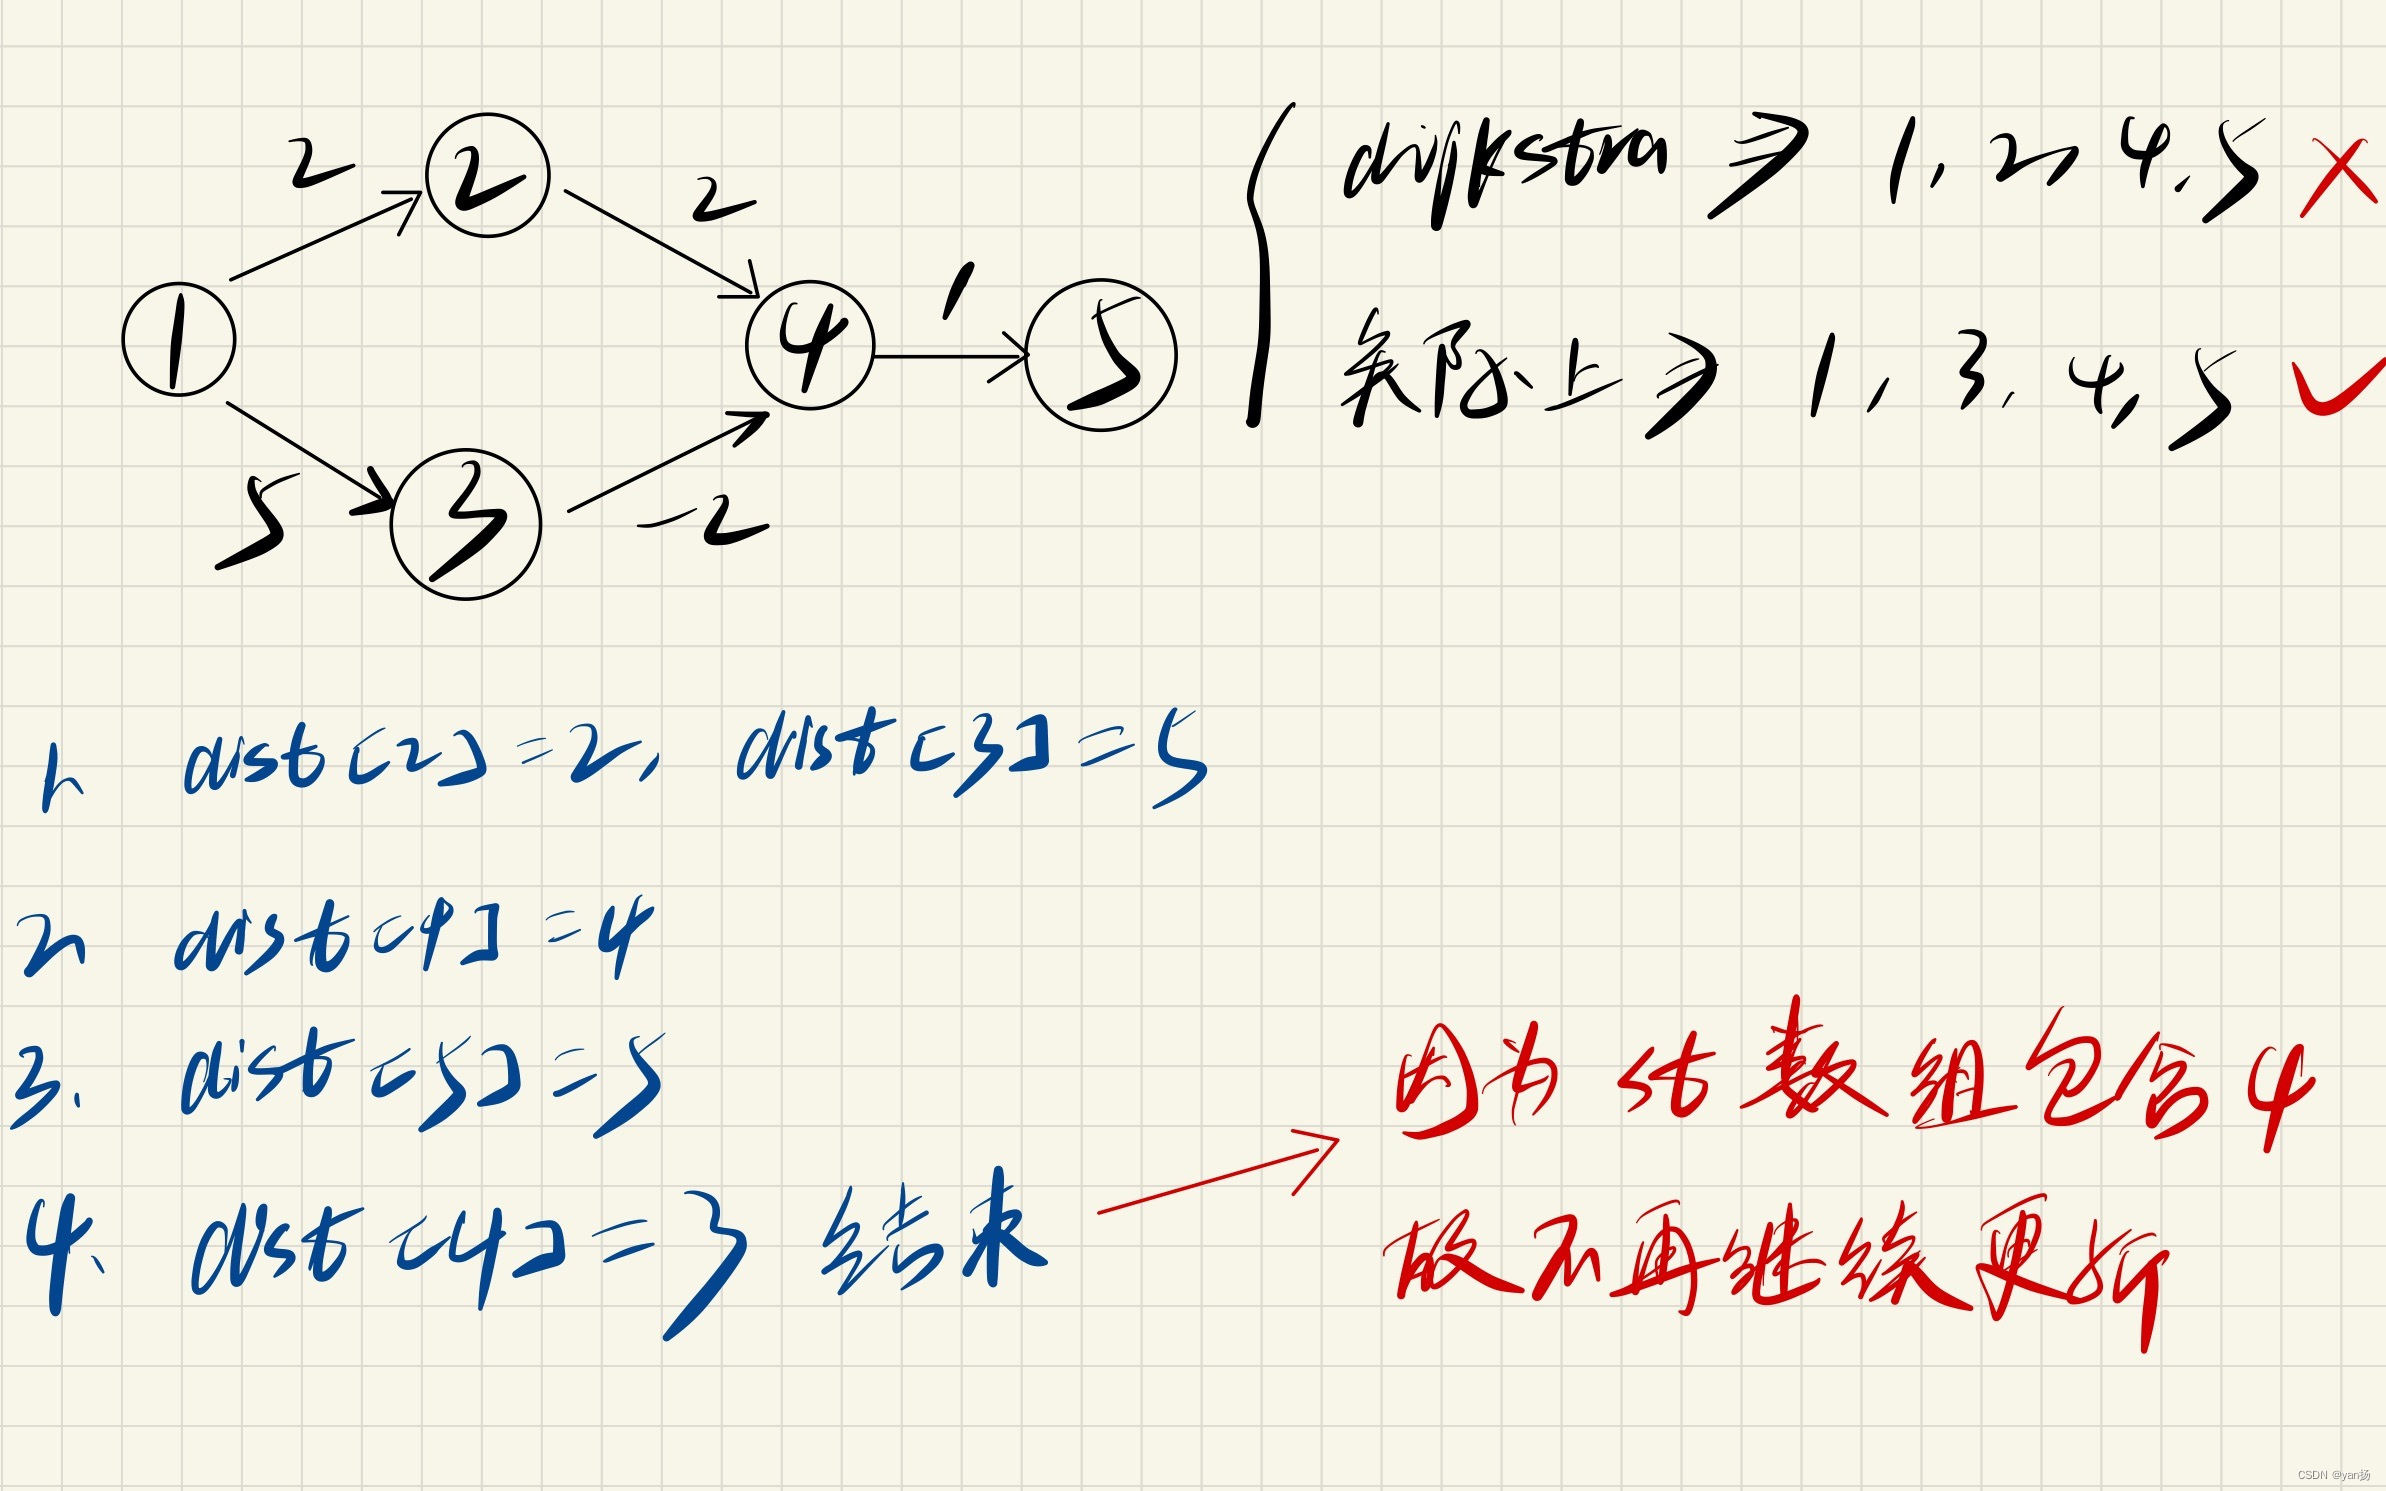 2
2
2
1
4
1
5
5
3
-2
dijkstra => 1, 2, 4, 5
实际上 => 1, 3, 4, 5
1. dist[2]=2, dist[3]=5
2. dist[4]=4
3. dist[5]=5
4、 dist[4]=3 结束
因为 st 数组包含 4
故不再继续更新
CSDN @yan扬